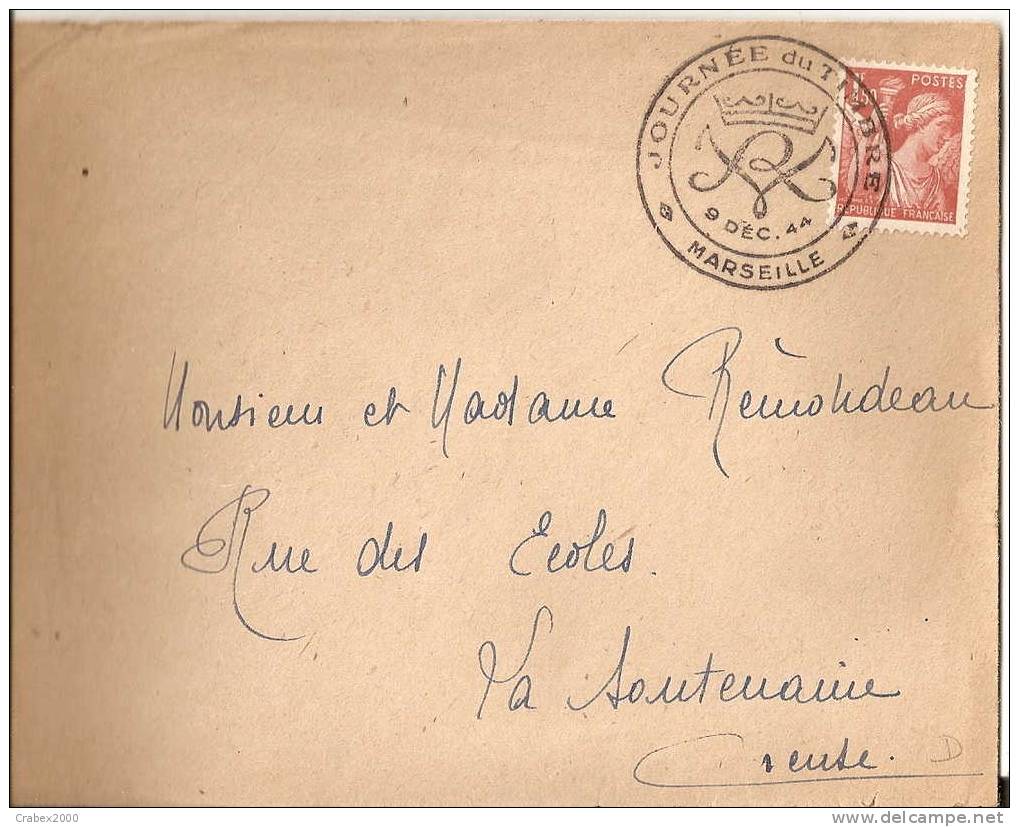 JOURNÉE du TIMBRE
9 DÉC. 44
MARSEILLE
POSTES
RÉPUBLIQUE FRANÇAISE
Monsieur et Madame Rémondeau
Rue des Ecoles.
La Souterraine
Creuse.
D
Crabex2000
www.delcampe.net